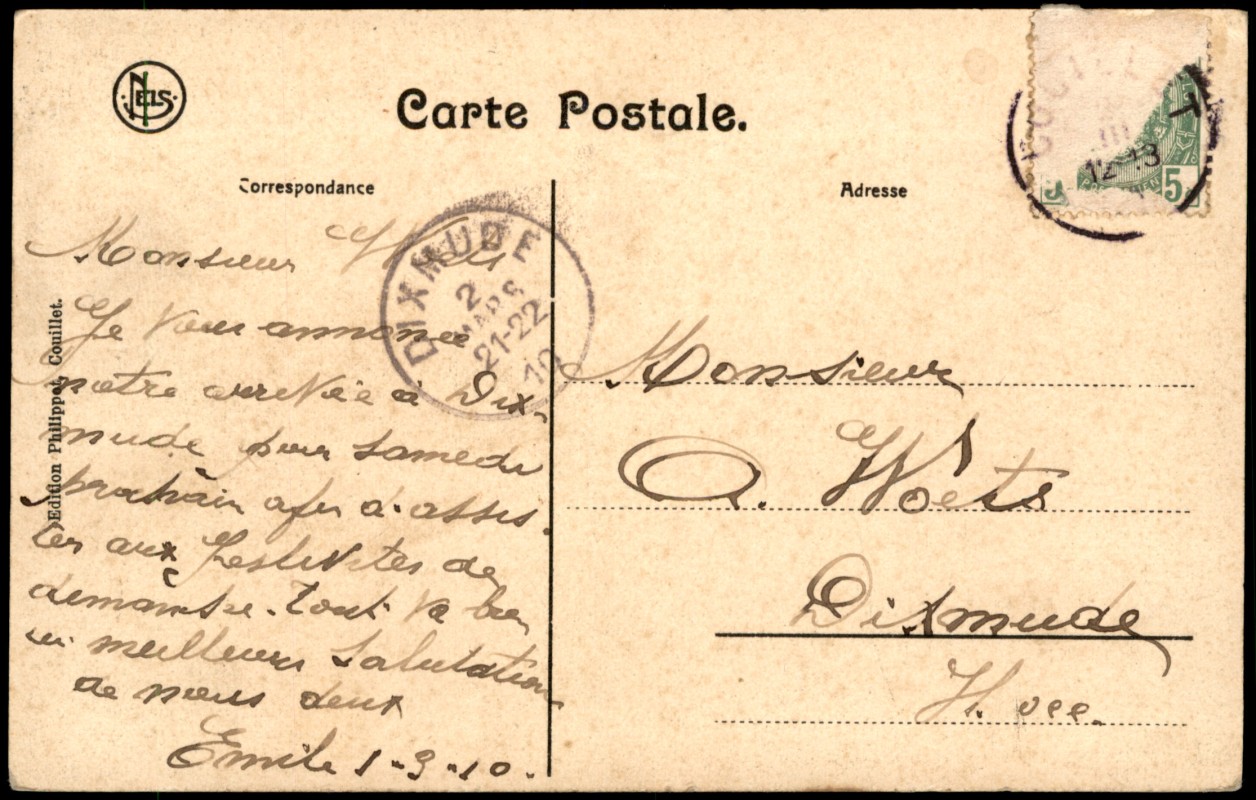 NELS
Carte Postale.
Correspondance
Adresse
COUILLET
12-13
5 5
DIXMUDE
2
MARS
21-22
10
Edition Philippot, Couillet.
Monsieur Woets
Je vous annonce
notre arrivée à Dix-
mude pour samedi
prochain afin d'assis-
ter aux festivités de
dimanche. tout va bien
ici meilleures salutation
de nous deux
Emile 1-3-10.
Monsieur
A. Woets
Dixmude